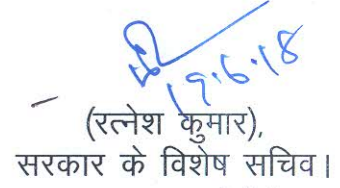 19.6.18
(रत्नेश कुमार),
सरकार के विशेष सचिव।